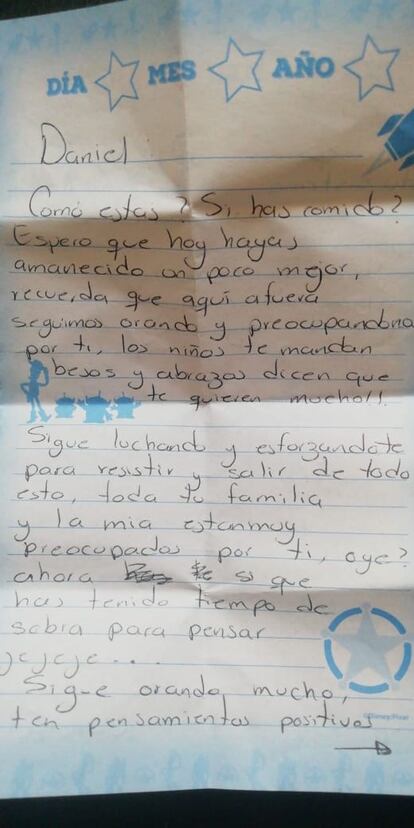 DÍA MES AÑO
Daniel
Como estas? Si has comido?
Espero que hoy hayas
amanecido un poco mejor,
recuerda que aquí afuera
seguimos orando y preocupandono
por ti, los niños te mandan
besos y abrazos dicen que
te quieren mucho!!
Sigue luchando y esforzandote
para resistir y salir de todo
esto, toda tu familia
y la mia estan muy
preocupados por ti, oye?
ahora si que
has tenido tiempo de
sobra para pensar
jejeje...
Sigue orando mucho,
ten pensamientos positivos
©Disney/Pixar